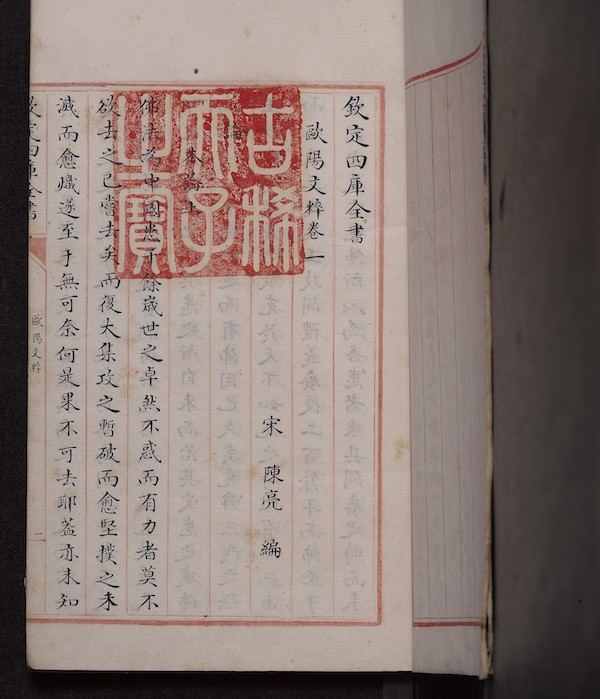 欽定四庫全書
歐陽文粹卷一
宋 陳亮 編
論
本論上
佛法為中國患千餘歲世之卓然不惑而有力者莫不
欲去之已嘗去矣而復大集攻之暫破而愈堅撲之未
滅而愈熾遂至于無可奈何是果不可去耶葢亦未知
欽定四庫全書
歐陽文粹
一
古稀
天子
之寶